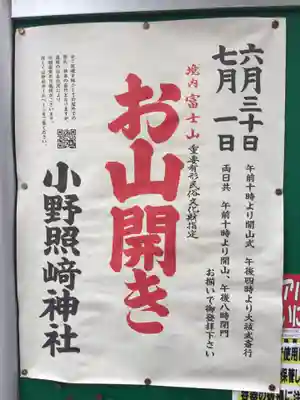 六月三十日
七月一日
午前十時より開山式 午後四時より大祓式斎行
両日共 午前十時より開山、午後八時閉門
お揃いで御登拝下さい
境内富士山 重要有形民俗文化財指定
お山開き
小野照崎神社